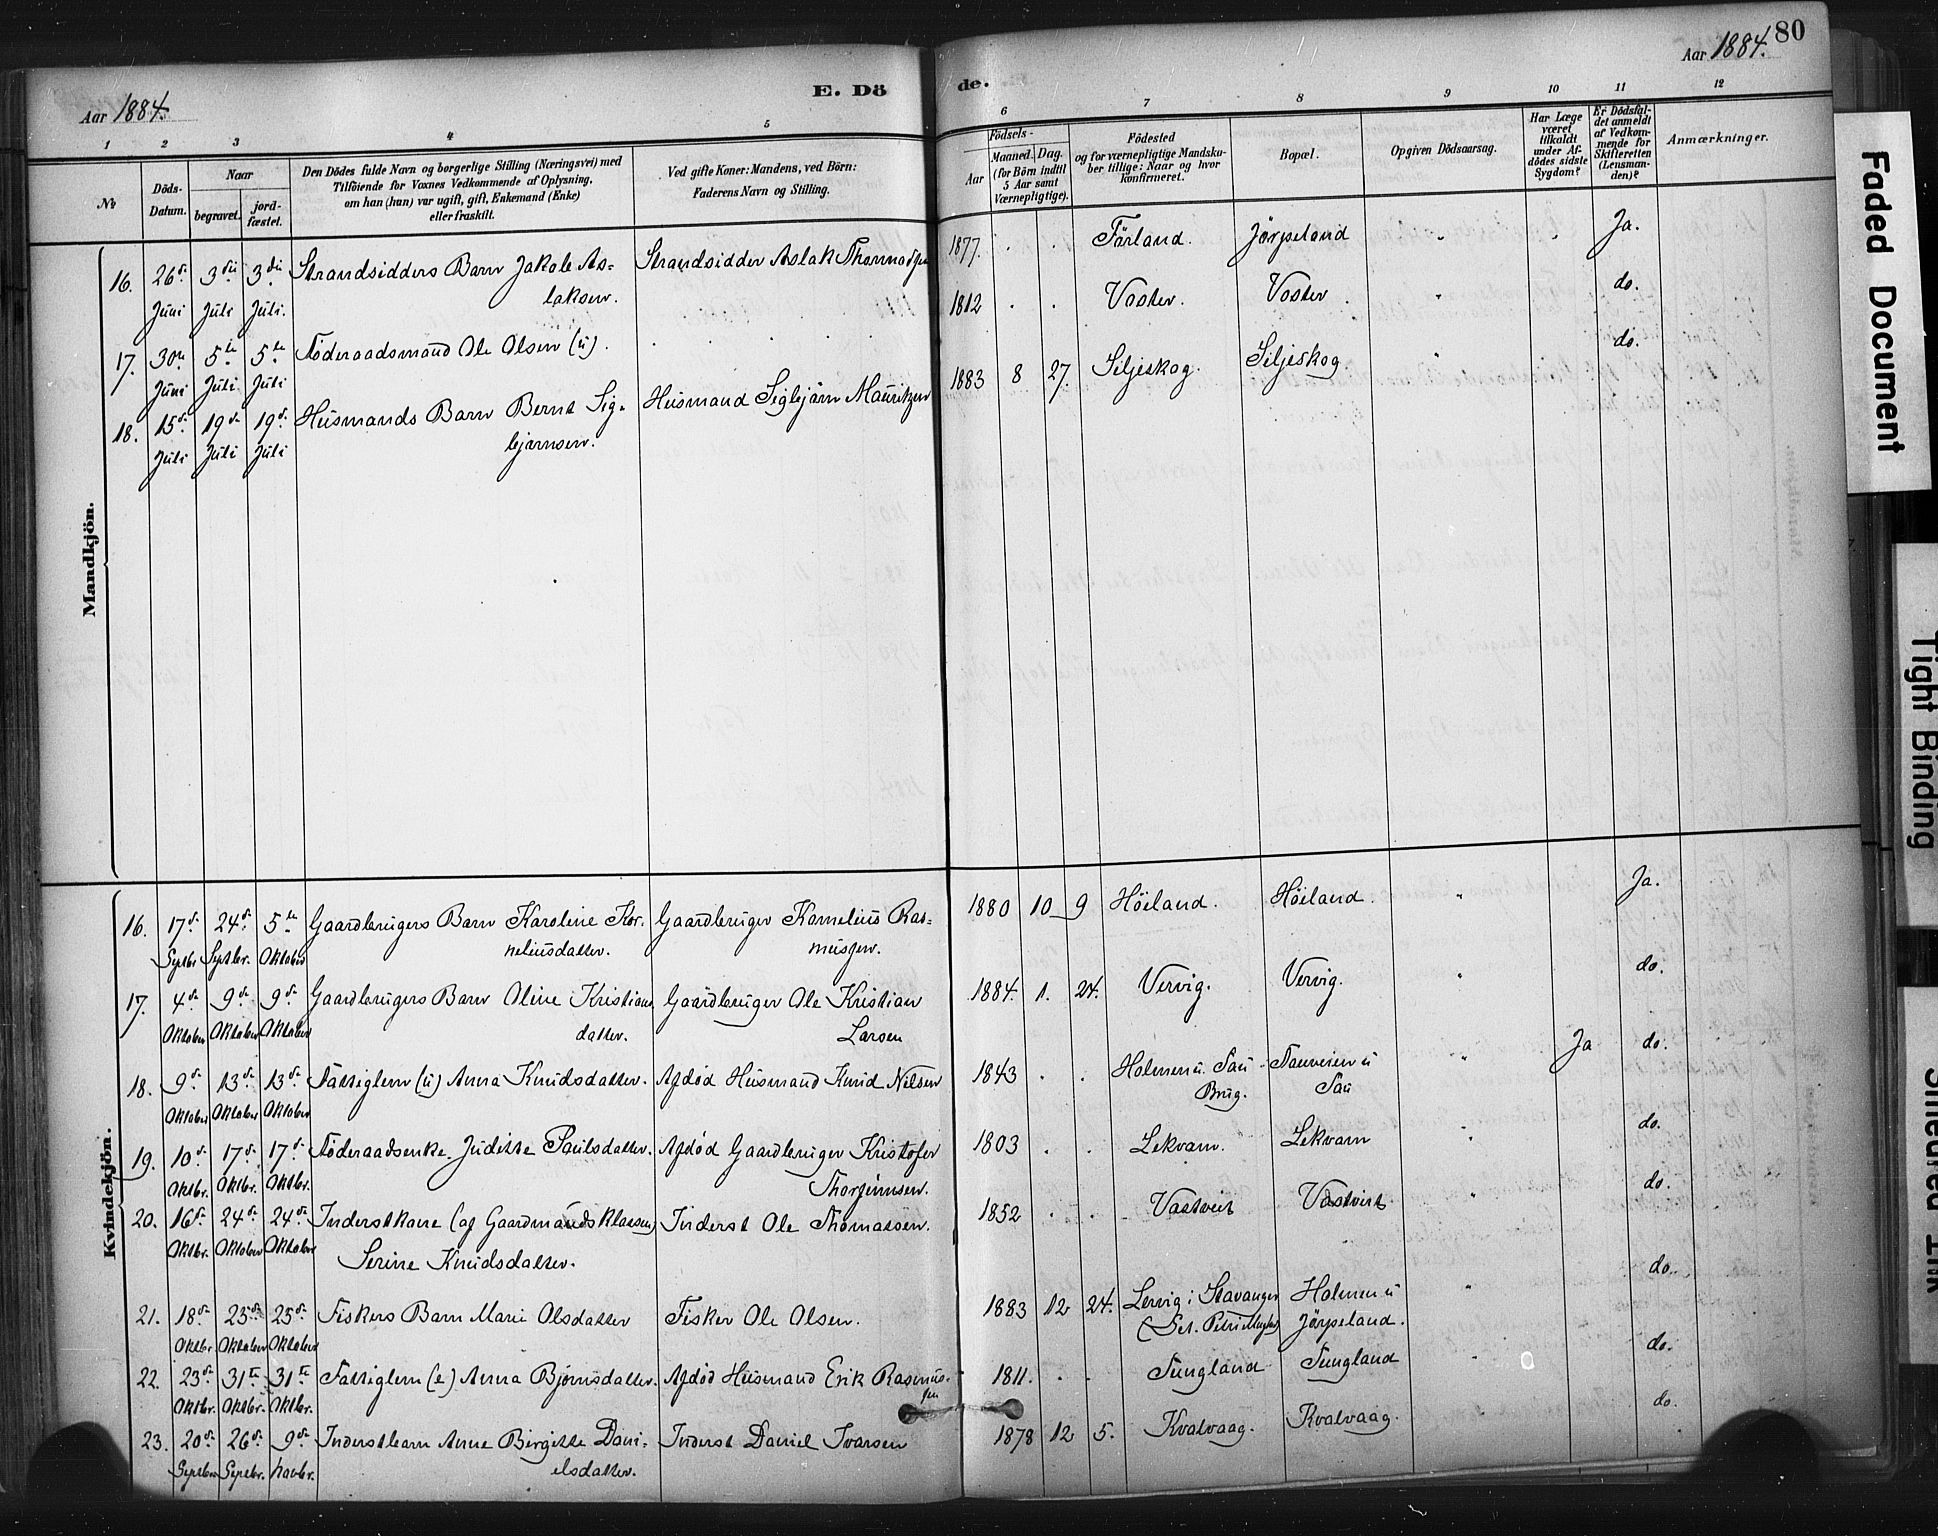 80
Aar 1884.
Aar 1884.
E. Dö
de.
1 2 3 4 5
6 7 8 9 10 11 12
No
Döds-
Datum.
Naar
begravet.
jord-
fæstet.
Den Dödes fulde Navn og borgerlige Stilling (Næringsvei) med
Tilföiende for Voxnes Vedkommende af Oplysning,
om han (hun) var ugift, gift, Enkemand (Enke)
eller fraskilt.
Ved gifte Koner: Mandens, ved Börn:
Faderens Navn og Stilling.
Födsels-
Aar
Maaned. Dag.
(for Börn indtil
5 Aar samt
Værnepligtige).
Födested
og for værnepligtige Mandska-
ber tillige: Naar og hvor
konfirmeret.
Bopæl.
Opgiven Dödsaarsag.
Har Læge
været
tilkaldt
under Af-
dödes sidste
Sygdom?
Er Dödsfal-
det anmeldt
af Vedkom-
mende for
Skifteretten
(Lensman-
den)?
Anmærkninger.
Mandkjön.
16. 26de Juni 3die Juli 3die Juli. Strandsidders Barn Jakob As-
laksen.
Strandsidder Aslak Thomassen 1877. . . Förland. Jörpeland Ja.
17. 30te Juni 5te Juli 5te Juli Föderaadsmand Ole Olsen (u). 1812 . . Voster. Voster do.
18. 15de Juli 19de Juli 19de Juli Husmands Barn Bernt Sig-
bjørnsen.
Husmand Sigbjörn Mauritzen 1883 8 27. Siljeskog. Siljeskog. do.
Kvindekjön.
16. 17de Septbr 24de Septbr. 5te Oktober Gaardbrugers Barn Karoline Kor-
neliusdatter.
Gaardbruger Kornelius Ras-
mussen.
1880 10 9 Höiland. Höiland. Ja.
17. 4de Oktober 9de Oktober 9de Oktober Gaardbrugers Barn Oline Kristians
datter.
Gaardbruger Ole Kristian
Larsen
1884. 1. 24. Vervig. Vervig. do.
18. 9de Oktober 13de Oktober 13de Oktober Fattiglem (u) Anna Knudsdatter. Afdød Husmand Knud Nilsen 1843 . . Holmen u. Tau
Brug.
Tauveien u
Tau
Ja do.
19. 10de Oktbr. 17de Oktbr. 17de Oktbr. Föderaadsenke Juditte Paulsdatter. Afdød Gaardbruger Kristofer
Thorjörnsen.
1803 . . Lekvam. Lekvam do.
20. 16de Oktbr. 24de Oktober 24de Oktober Inderstkone (af Gaardmandsklassen)
Serine Knudsdatter.
Inderst Ole Thomassen. 1852 . . Vastveit Vastveit do.
21. 18de Oktbr 25de Oktober 25de Oktober Fiskers Barn Marie Olsdatter Fisker Ole Olsen. 1883 12 24. Lervig i Stavanger
(Sct. Petri Mgh)
Holmen u
Jörpeland.
do.
22. 23de Oktbr. 31te Oktbr. 31te Oktbr. Fattiglem (e) Anna Bjørnsdatter. Afdød Husmand Erik Rasmus-
sen
1811. . . Tungland Tungland do.
23. 20de Septbr 26de Septbr. 9de Novbr. Inderstbarn Anne Bergitte Dani-
elsdatter.
Inderst Daniel Ivarsen 1878 12 5. Kvalvaag. Kvalvaag. do.
Faded Document
Tight Binding
Smeared Ink